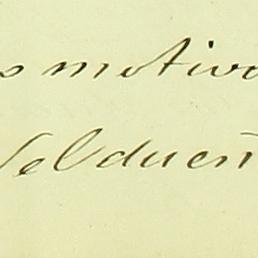 s motivo
del dueñ